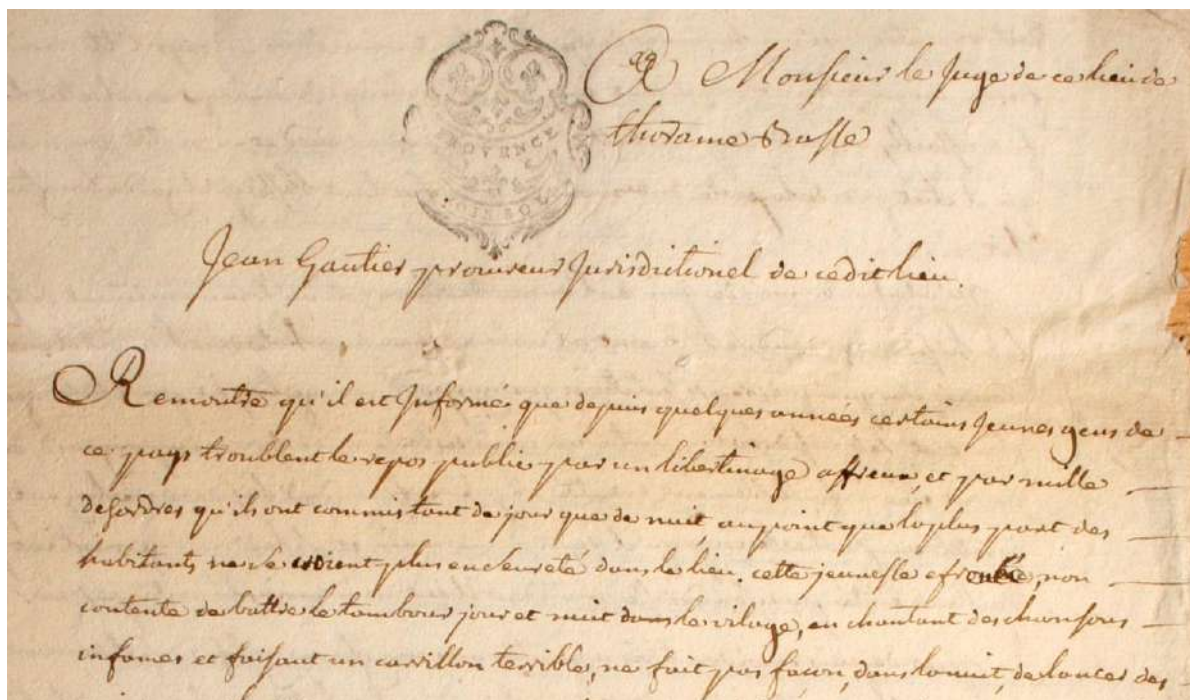 A Monsieur le Juge de ce lieu de
thorame Basse
PROVENCE
Jean Gautier procureur Jurisdictionel de cedit lieu.
Remontre qu'il est Informé que depuis quelques années certains Jeunes gens de
ce pays troublent le repos public par un libertinage affreux, et par mille
desordres qu'ils ont commis tant de jour que de nuit, au point que la plus part des
habitants ne se croient plus en seureté dans le lieu. cette jeunesse efrontée, non
contente de battre le tambour jour et nuit dans le vilage, en chantant des chansons
infames et faisant un carrillon terrible, ne fait pas façon, dans la nuit, de lancer des